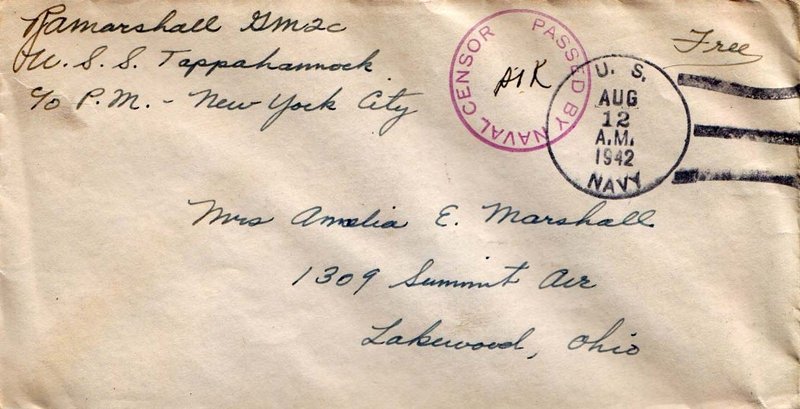 Ramarshall GM2c
U. S. S. Tappahannock
c/o P.M. - New York City
PASSED BY NAVAL CENSOR
Free
U. S.
AUG
12
A.M.
1942
NAVY
Mrs Amelia E. Marshall
1309 Summit Ave
Lakewood, Ohio